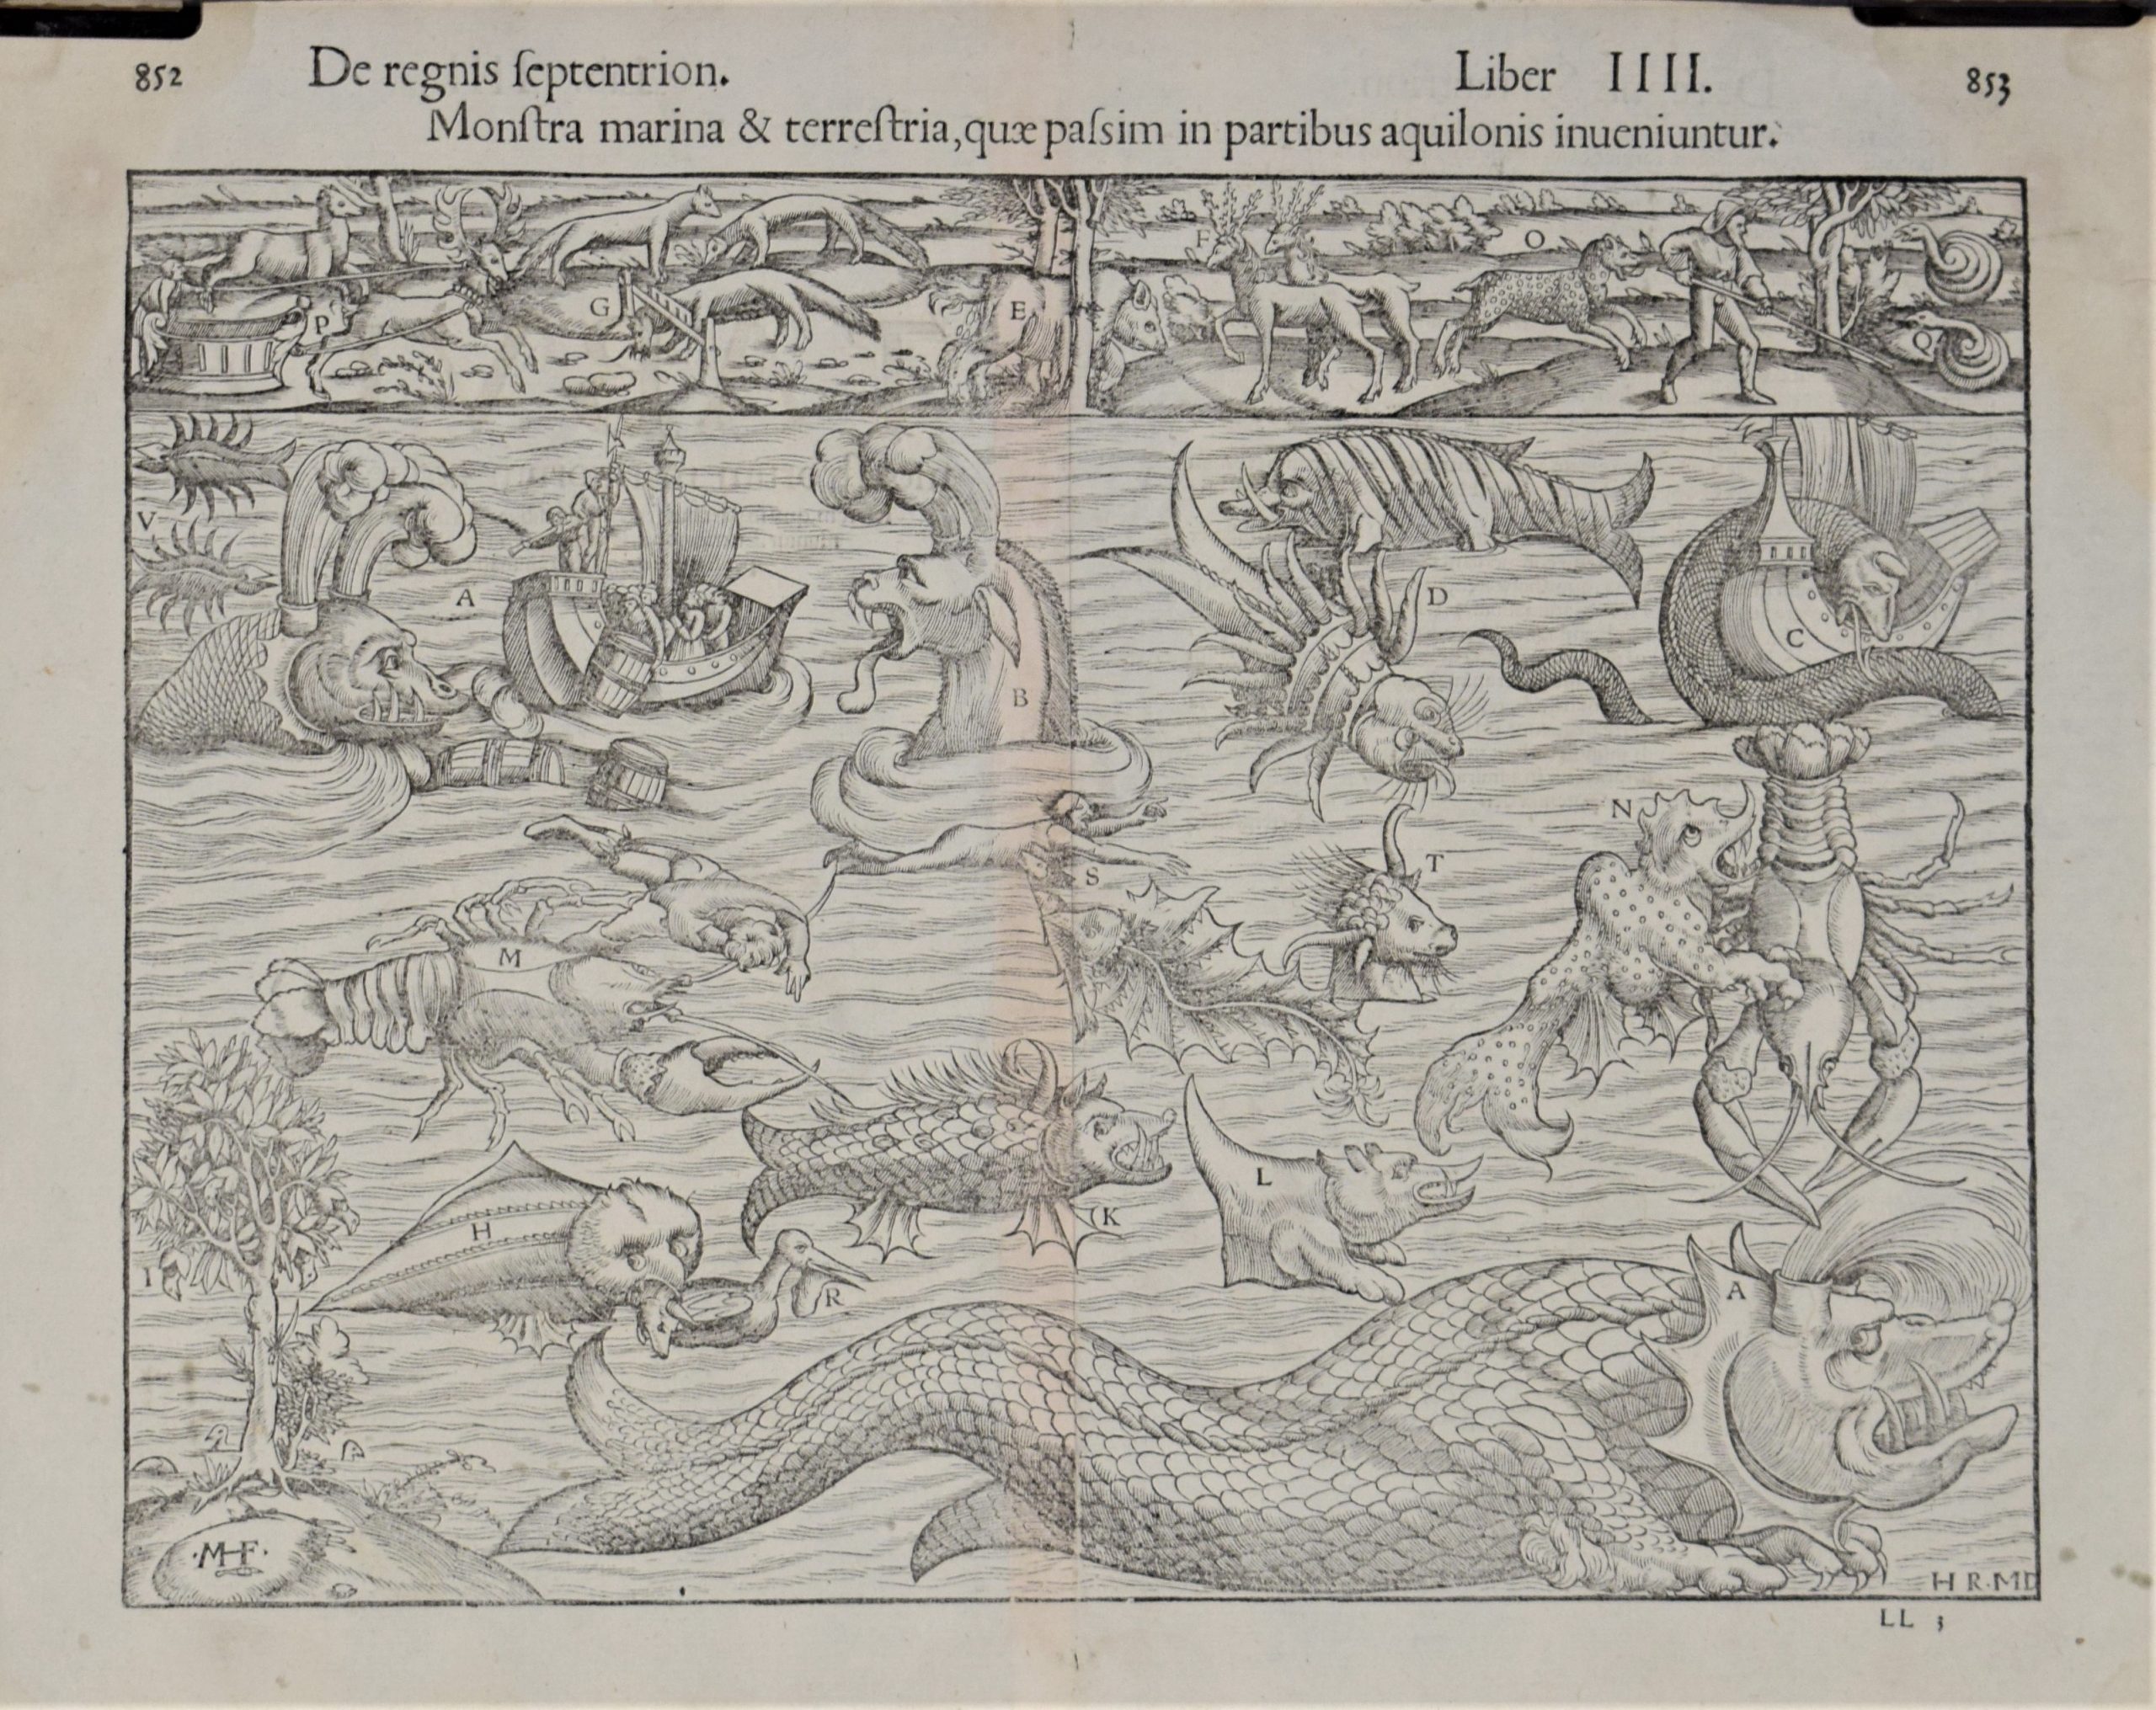 852 De regnis ſeptentrion. Liber IIII. 853
Monſtra marina & terreſtria, quæ paſsim in partibus aquilonis inueniuntur.
F O
G E
P Q
V
A D
C
B
N
T
S
M
L
K
H
I
R A
·MHF·
H R·MD
LL 3